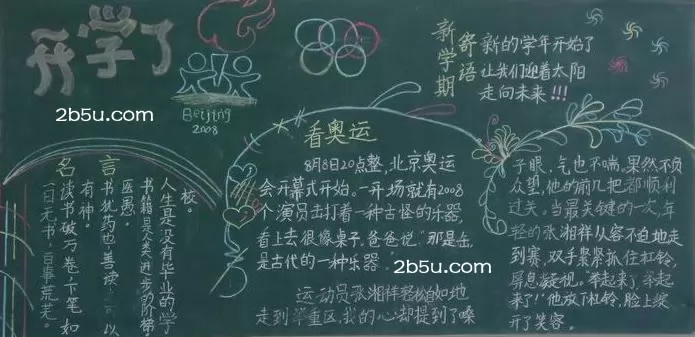 开学了
2b5u.com
Beijing
2008
新学期
寄语
新的学年开始了
让我们迎着太阳
走向未来!!!
名言
人生是没有毕业的学
校。
书籍是人类进步的阶梯
书犹药也,善读 可以
医愚。
读书破万卷,下笔如
有神。
一日无书,百事荒芜。
看奥运
8月8日20点整,北京奥运
会开幕式开始。一开场就有2008
个演员击打着一种古怪的乐器,
看上去很像桌子,爸爸说:“那是缶,
是古代的一种乐器。”
运动员张湘祥轻松自如地
走到举重区,我的心却提到了嗓
子眼,气也不喘。果然不负
众望,他的前几把都顺利
过关。当最关键的一次,年
轻的张湘祥从容不迫地走
到赛,双手紧紧抓住杠铃,
屏息凝视。“举起来了,举起
来了!”他放下杠铃,脸上绽
开了笑容。
2b5u.com